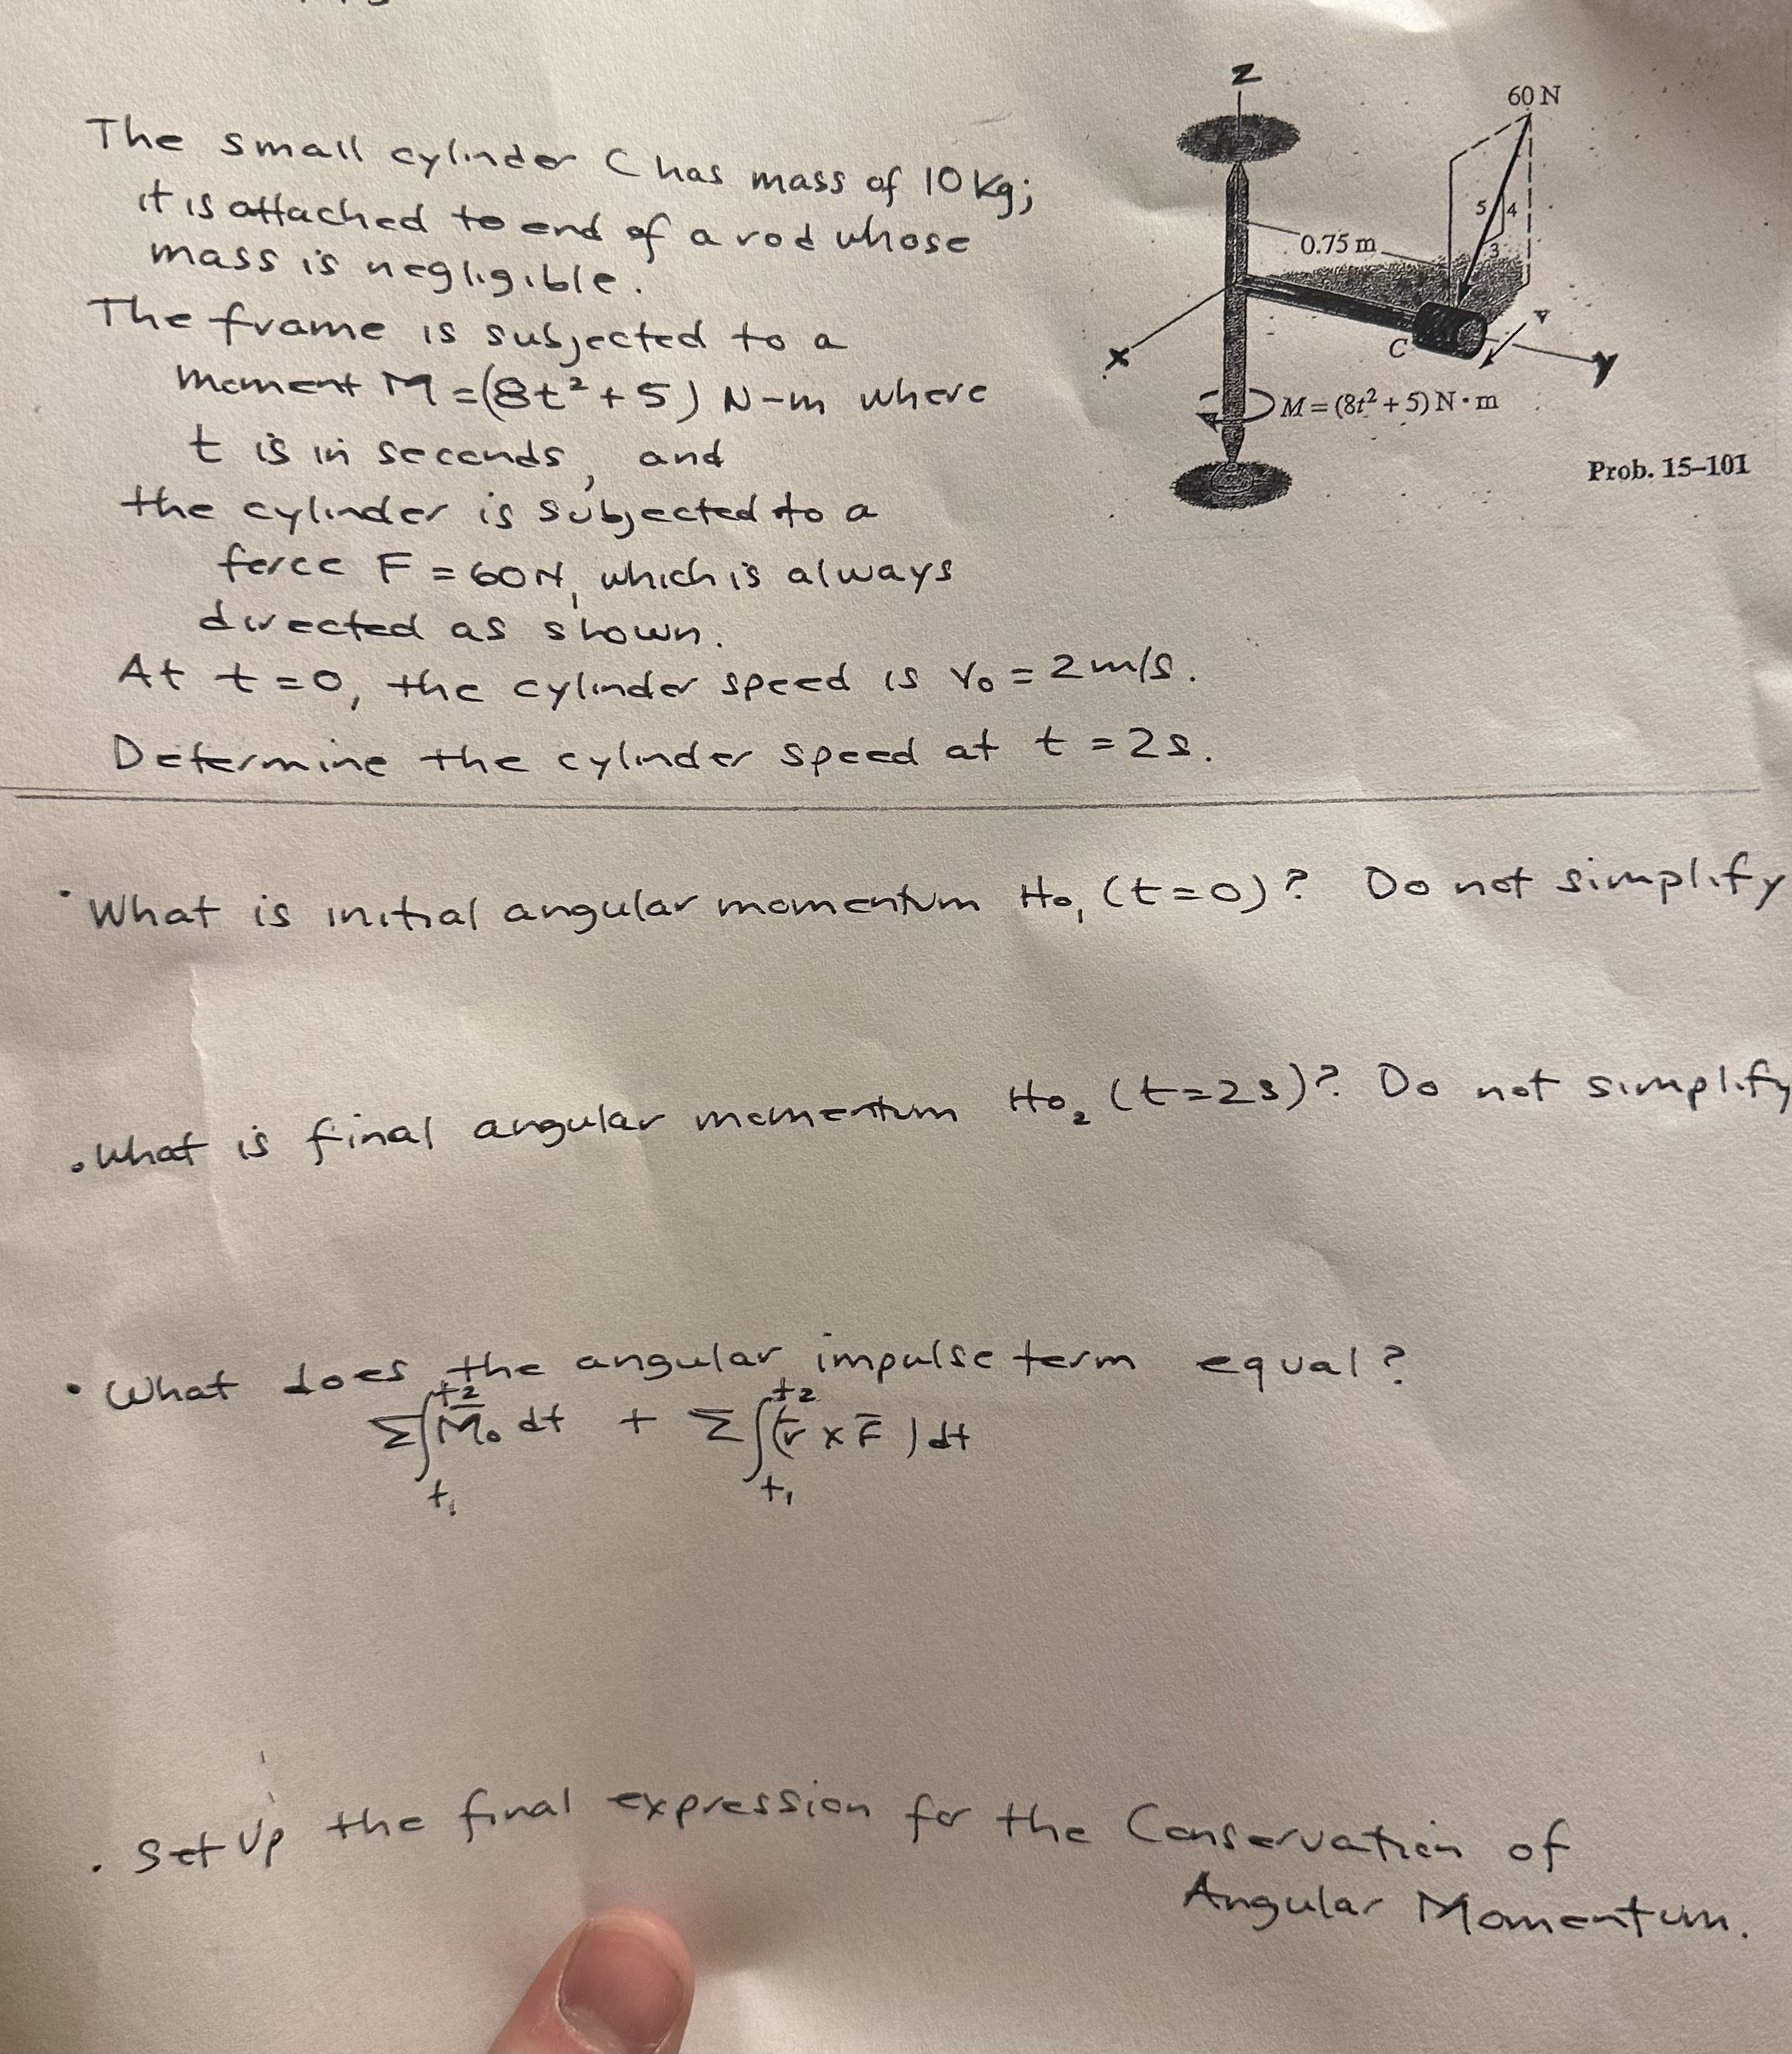 The small cylinder C has mass of 10 kg;
it is attached to end of a rod whose
mass is negligible.
The frame is subjected to a
moment M = (8t² + 5) N-m where
t is in seconds, and
the cylinder is subjected to a
force F = 60N, which is always
directed as shown.
At t = 0, the cylinder speed is v₀ = 2 m/s.
Determine the cylinder speed at t = 2s.
z
60 N
5
4
3
0.75 m
v
C
x
y
M = (8t² + 5) N · m
Prob. 15–101
• What is initial angular momentum Ho₁ (t=0)? Do not simplify
• What is final angular momentum Ho₂ (t=2s)? Do not simplify
• What does the angular impulse term equal?
Σ∫_{t₁}^{t₂} M̅₀ dt + Σ∫_{t₁}^{t₂} (r̅ × F̅) dt
• Set Up the final expression for the Conservation of
Angular Momentum.